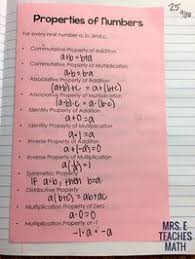 25
Properties of Numbers
For every real number a, b, and c,
• Commutative Property of Addition
a+b=b+a
• Commutative Property of Multiplication
a·b=b·a
• Associative Property of Addition
(a+b)+c = a+(b+c)
• Associative Property of Multiplication
(a·b)·c = a·(b·c)
• Identity Property of Addition
a+0=a
• Identity Property of Multiplication
a·1=a
• Inverse Property of Addition
a+(-a)=0
• Inverse Property of Multiplication
a·(1/a)=1
• Symmetric Property
IF a=b, then b=a.
• Distributive Property
a(b+c) = ab+ac
• Multiplication Property of Zero
a·0=0
• Multiplication Property of -1
-1·a=-a
MRS. E
TEACHES
MATH